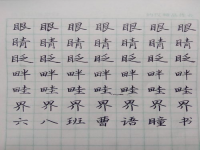 眼眼眼眼眼眼眼
睛睛睛睛睛睛睛
眨眨眨眨眨眨眨
畔畔畔畔畔畔畔
畦畦畦畦畦畦畦
界界界界界界界
六八班曹语瞳书